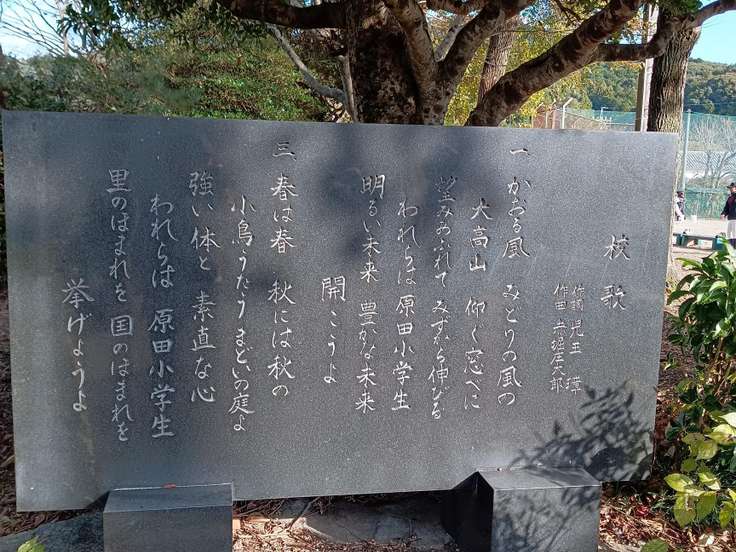 校歌
作詞 児玉
作曲 赤堀庄太郎
一 かおる風 みどりの風の
大高山 仰ぐ窓べに
望みあふれて みずから伸びる
われらは 原田小学生
明るい未来 豊かな未来
開こうよ
三 春は春 秋には秋の
小鳥うたう まどいの庭よ
強い体と 素直な心
われらは 原田小学生
里のほまれを 国のほまれを
挙げようよ